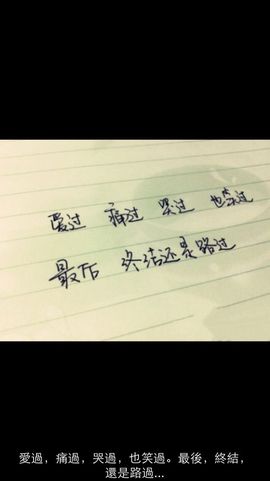 爱过 痛过 哭过 也笑过
最后 终结还是路过
愛過，痛過，哭過，也笑過。最後，終結，
還是路過...